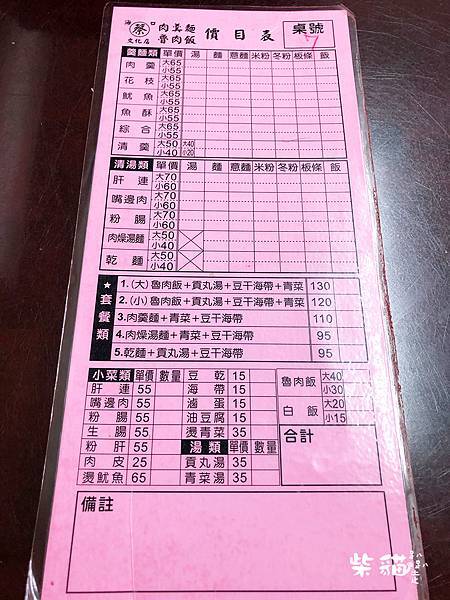 海口 蔡 文化店 肉羹麵 魯肉飯 價目表 桌號 7
羹麵類 單價 湯 麵 意麵 米粉 冬粉 板條 飯
肉羹 大65 小55
花枝 大65 小55
魷魚 大65 小55
魚酥 大65 小55
綜合 大65 小55
清羹 大50 小40 大40 小20
清湯類 單價 湯 麵 意麵 米粉 冬粉 板條 飯
肝連 大70 小60
嘴邊肉 大70 小60
粉腸 大70 小60
肉燥湯麵 大50 小40
乾麵 大50 小40
★套餐類
1.(大)魯肉飯+貢丸湯+豆干海帶+青菜 130
2.(小)魯肉飯+貢丸湯+豆干海帶+青菜 120
3.肉羹麵+青菜+豆干海帶 110
4.肉燥湯麵+青菜+豆干海帶 95
5.乾麵+貢丸湯+豆干海帶 95
小菜類 單價 數量 豆乾 15
肝連 55 海帶 15
嘴邊肉 55 滷蛋 15
粉腸 55 油豆腐 15
生腸 55 燙青菜 35
粉肝 55 湯類 單價 數量
肉皮 25 貢丸湯 35
燙魷魚 65 青菜湯 35
魯肉飯 大40 小30
白飯 大20 小15
合計
備註
柴貓